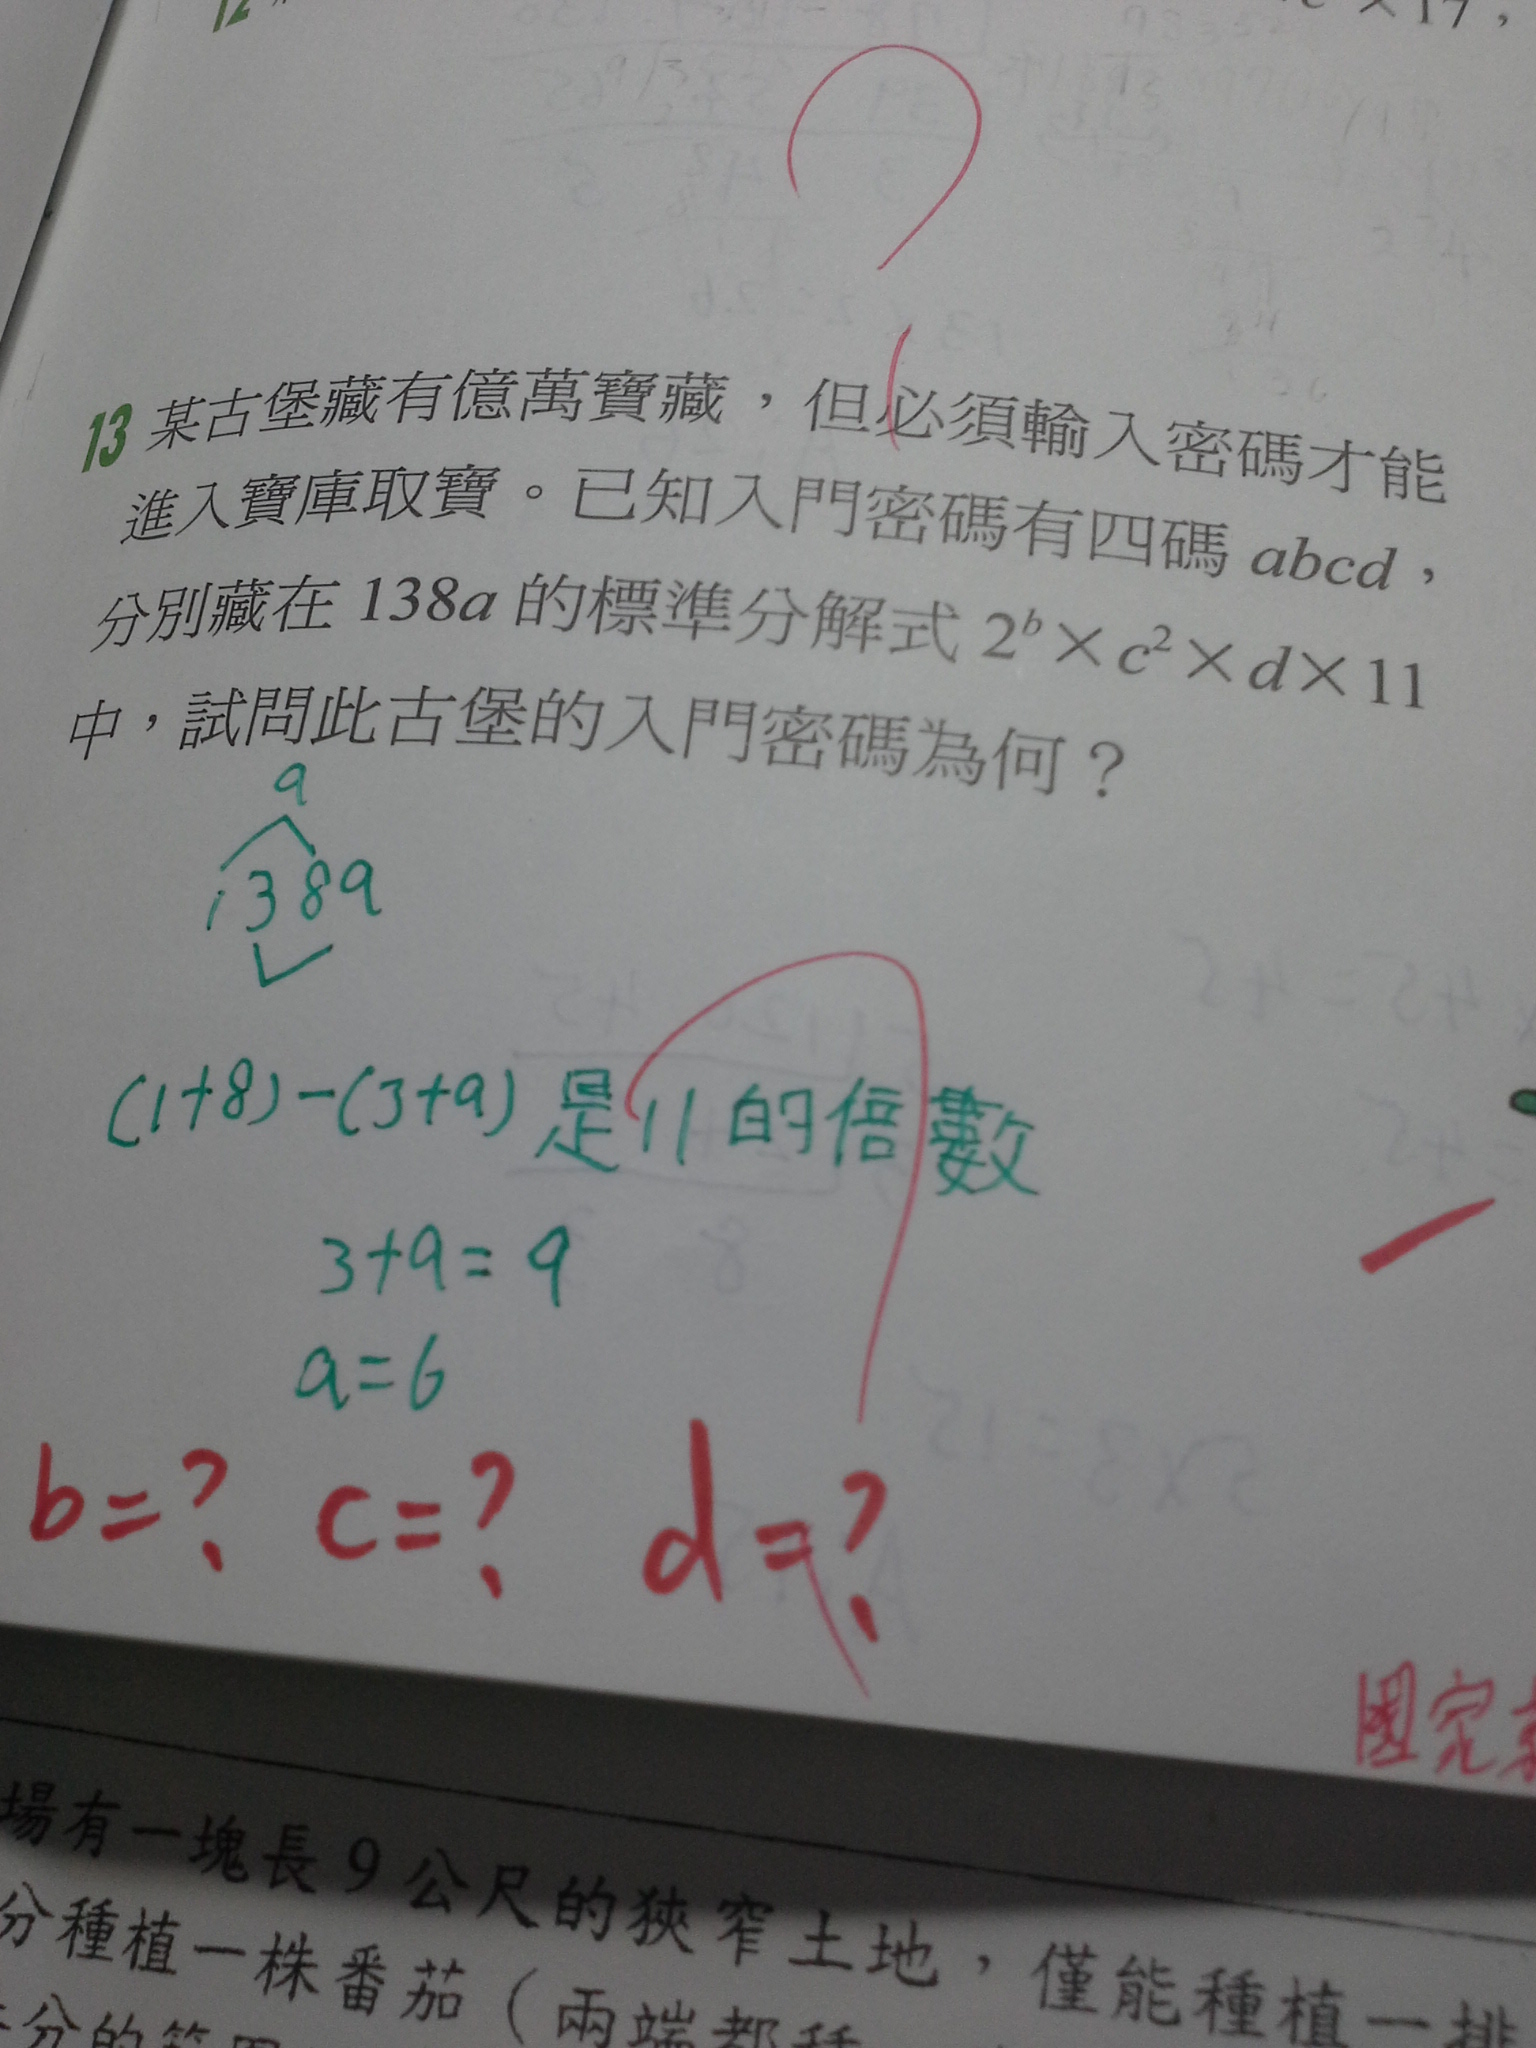 12
× 17，
13 某古堡藏有億萬寶藏，但必須輸入密碼才能
進入寶庫取寶。已知入門密碼有四碼 abcd，
分別藏在 138a 的標準分解式 2ᵇ×c²×d×11
中，試問此古堡的入門密碼為何？
9
138a
(1+8)-(3+a) 是11的倍數
3+a=9
a=6
b=? c=? d=?
場有一塊長 9 公尺的狹窄土地，僅能種植一排
分種植一株番茄（兩端都種